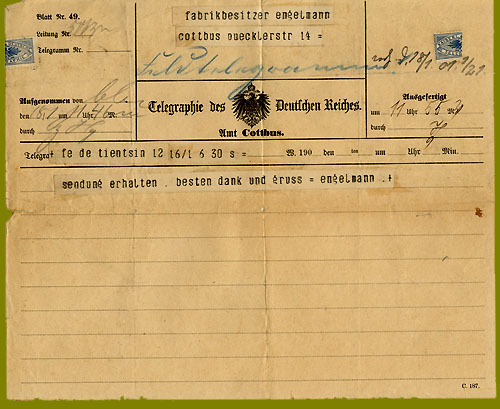 Blatt Nr. 49.
Leitung Nr.
Telegramm Nr.
fabrikbesitzer engelmann
cottbus puecklerstr 14 =
Feldtelegramm
Aufgenommen von
den 18/1 um 11 Uhr 46 M
durch
Telegraphie des Deutschen Reiches.
Amt Cottbus.
Ausgefertigt
um 11 Uhr 55 M
durch
Telegraf fe de tientsin 12 16/1 6 30 s = W. 190 den ten um Uhr Min.
sendung erhalten . besten dank und gruss = engelmann .+
C. 187.